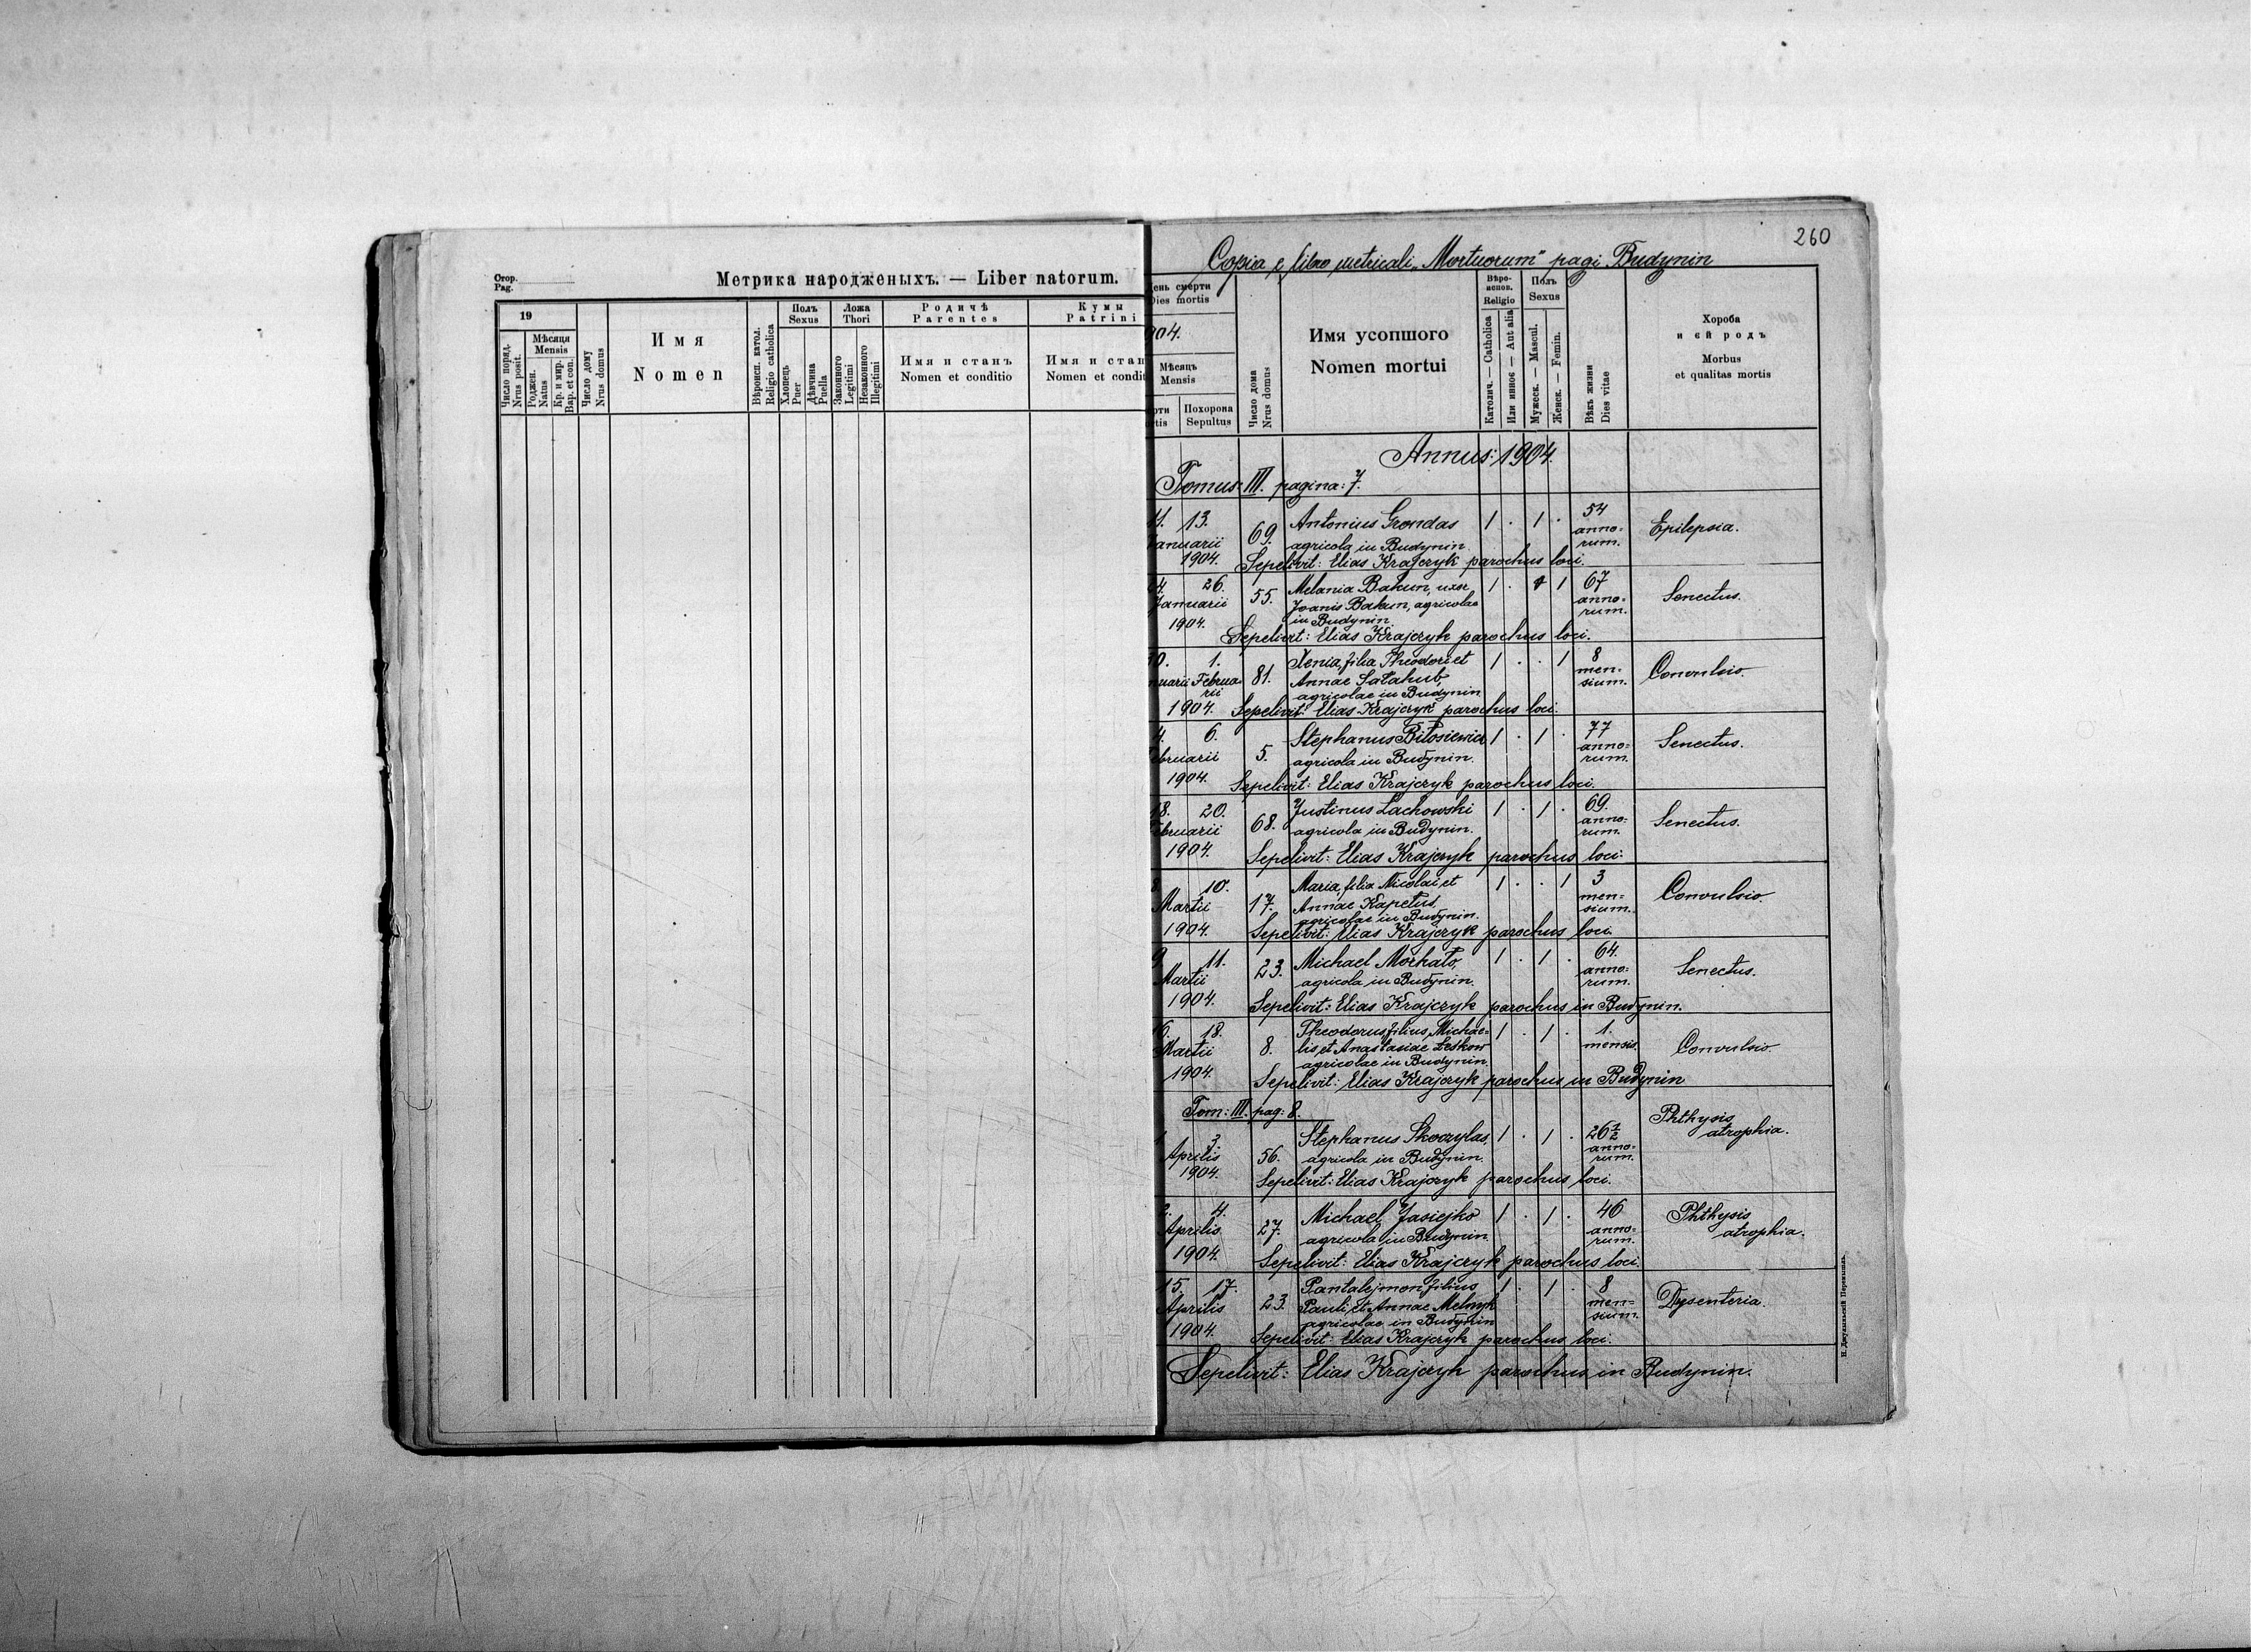 Стор.
Pag.
Метрика народженыхъ. — Liber natorum.
19
Число поряд.
Nrus posit.
Мѣсяця
Mensis
Роджен.
Natus
Кр. и мир.
Bap. et con.
Число дому
Nrus domus
Имя
Nomen
Вѣроисп. катол.
Religio catholica
Полъ
Sexus
Хлопець
Puer
Дѣвчина
Puella
Ложа
Thori
Законного
Legitimi
Незаконного
Illegitimi
Родичѣ
Parentes
Имя и станъ
Nomen et conditio
Кумы
Patrini
Имя и стан
Nomen et condit
260
Copia e libro metricali „Mortuorum" pagi Budynin
ень смерти
Dies mortis
904.
Мѣсяць
Mensis
рти
rtis
Похорона
Sepultus
Число дома
Nrus domus
Имя усопшого
Nomen mortui
Вѣро-
испов.
Religio
Католич. — Catholica
Или инноє — Aut alia
Полъ
Sexus
Мужеск. — Mascul.
Женск. — Femin.
Вѣкъ жизни
Dies vitae
Хороба
и єй родъ
Morbus
et qualitas mortis
Annus: 1904.
Tomus: III. pagina: 7.
11. 13. Januarii 1904. 69. Antonius Grondas 1 . 1 . 54 anno= rum. Epilepsia.
agricola in Budynin
Sepelivit: Elias Krajczyk parochus loci.
4. 26. Januarii 1904. 55. Melania Bakun, uxor 1 . 1 67 anno= rum. Senectus.
Joanis Bakun, agricolae
in Budynin
Sepelivit: Elias Krajczyk parochus loci.
30. 1. nuarii Februa= rii 1904. 81. Xenia, filia Theodori et 1 . . 1 8 men= sium. Convulsio.
Annae Sałahub,
agricolae in Budynin
Sepelivit: Elias Krajczyk parochus loci.
4. 6. ebruarii 1904. 5. Stephanus Biłosiewicz 1 . 1 . 77 anno= rum. Senectus.
agricola in Budynin.
Sepelivit: Elias Krajczyk parochus loci.
18. 20. Februarii 1904. 68. Justinus Lachowski 1 . 1 . 69. anno= rum. Senectus.
agricola in Budynin.
Sepelivit: Elias Krajczyk parochus loci.
8. 10. Martii 1904. 17. Maria, filia Nicolai et 1 . . 1 3 men= sium. Convulsio.
Annae Kapetus
agricolae in Budynin.
Sepelivit: Elias Krajczyk parochus loci.
9 11. Martii 1904. 23. Michael 1 . 1 . 64. anno= rum. Senectus.
agricola in Budynin.
Sepelivit: Elias Krajczyk parochus in Budynin.
6. 18. Martii 1904. 8. Theodorus, filius Michae= 1 . 1 . 1. mensis. Convulsio.
lis et Anastasiae Leskow
agricolae in Budynin.
Sepelivit: Elias Krajczyk parochus in Budynin
Tom: III. pag: 8.
1 3. Aprilis 1904. 56. Stephanus Skoczylas, 1 . 1 . 26 1/2 anno= rum. Phthysis atrophia.
agricola in Budynin.
Sepelivit: Elias Krajczyk parochus loci.
2. 4. Aprilis 1904. 27. Michael Jasiejko 1 . 1 . 46 anno= rum. Phthysis atrophia.
agricola in Budynin.
Sepelivit: Elias Krajczyk parochus loci.
15. 17. Aprilis 1904. 23. Pantalejmon, filius 1 . 1 . 8 men= sium. Dysenteria.
Pauli, et Annae Melnyk
agricolae in Budynin
Sepelivit: Elias Krajczyk parochus loci.
Sepelivit: Elias Krajczyk parochus in Budynin.